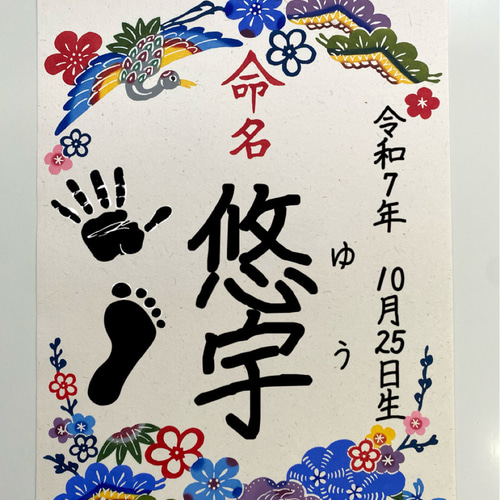 令和7年 10月25日生
命名
悠宇
ゆう